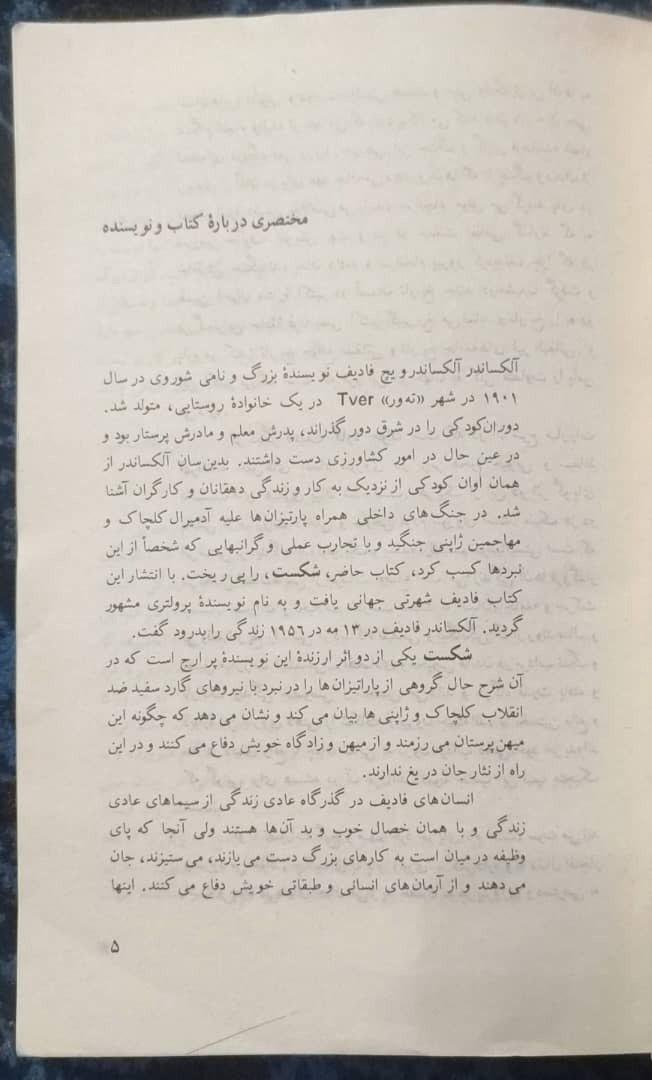 مختصری دربارهٔ کتاب و نویسنده
آلکساندر آلکساندرویچ فادیف نویسندهٔ بزرگ و نامی شوروی در سال
۱۹۰۱ در شهر «ته‌ور» Tver در یک خانوادهٔ روستایی، متولد شد.
دوران کودکی را در شرق دور گذراند، پدرش معلم و مادرش پرستار بود و
در عین حال در امور کشاورزی دست داشتند. بدین‌سان آلکساندر از
همان اَوان کودکی از نزدیک به کار و زندگی دهقانان و کارگران آشنا
شد. در جنگ‌های داخلی همراه پارتیزان‌ها علیه آدمیرال کلچاک و
مهاجمین ژاپنی جنگید و با تجارب عملی و گرانبهایی که شخصاً از این
نبردها کسب کرد، کتاب حاضر، شکست، را پی ریخت. با انتشار این
کتاب فادیف شهرتی جهانی یافت و به نام نویسندهٔ پرولتری مشهور
گردید. آلکساندر فادیف در ۱۳ مه در ۱۹۵۶ زندگی را بدرود گفت.
شکست یکی از دو اثر ارزندهٔ این نویسندهٔ پر ارج است که در
آن شرح حال گروهی از پاراتیزان‌ها را در نبرد با نیروهای گارد سفید ضد
انقلاب کلچاک و ژاپنی‌ها بیان می‌کند و نشان می‌دهد که چگونه این
میهن‌پرستان می‌رزمند و از میهن و زادگاه خویش دفاع می‌کنند و در این
راه از نثار جان دریغ ندارند.
انسان‌های فادیف در گذرگاه عادی زندگی از سیماهای عادی
زندگی و با همان خصال خوب و بد آن‌ها هستند ولی آنجا که پای
وظیفه در میان است به کارهای بزرگ دست می‌یازند، می‌ستیزند، جان
می‌دهند و از آرمان‌های انسانی و طبقاتی خویش دفاع می‌کنند. اینها
۵